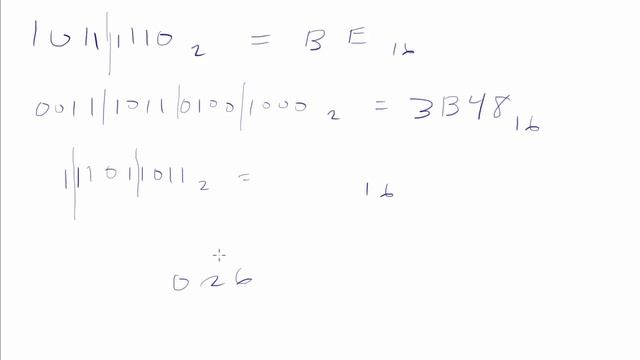 1011|1110₂ = BE₁₆
0011|1011|0100|1000₂ = 3B48₁₆
1|1101|1011₂ = ₁₆
026